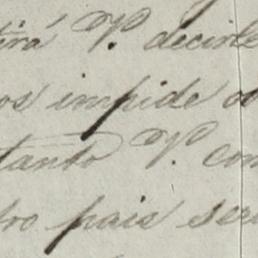 irá V. decirle
os impide
tanto V. con
tro pais ser